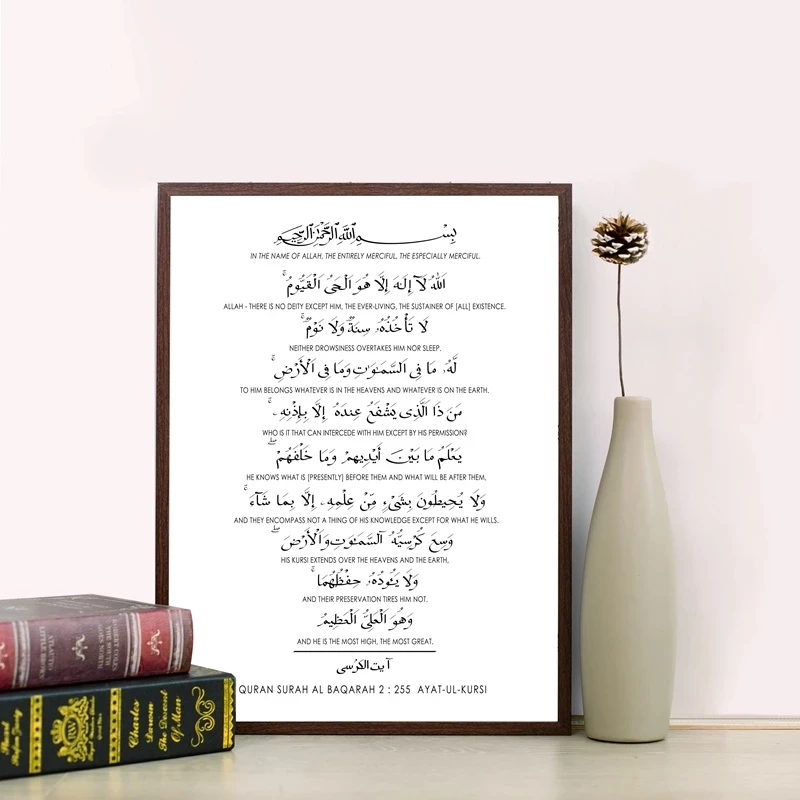 بِسْمِ ٱللَّهِ ٱلرَّحْمَٰنِ ٱلرَّحِيمِ
IN THE NAME OF ALLAH, THE ENTIRELY MERCIFUL, THE ESPECIALLY MERCIFUL.
ٱللَّهُ لَآ إِلَٰهَ إِلَّا هُوَ ٱلْحَىُّ ٱلْقَيُّومُ ۚ
ALLAH - THERE IS NO DEITY EXCEPT HIM, THE EVER-LIVING, THE SUSTAINER OF [ALL] EXISTENCE.
لَا تَأْخُذُهُۥ سِنَةٌ وَلَا نَوْمٌ ۚ
NEITHER DROWSINESS OVERTAKES HIM NOR SLEEP.
لَّهُۥ مَا فِى ٱلسَّمَٰوَٰتِ وَمَا فِى ٱلْأَرْضِ ۗ
TO HIM BELONGS WHATEVER IS IN THE HEAVENS AND WHATEVER IS ON THE EARTH.
مَن ذَا ٱلَّذِى يَشْفَعُ عِندَهُۥٓ إِلَّا بِإِذْنِهِۦ ۚ
WHO IS IT THAT CAN INTERCEDE WITH HIM EXCEPT BY HIS PERMISSION?
يَعْلَمُ مَا بَيْنَ أَيْدِيهِمْ وَمَا خَلْفَهُمْ ۖ
HE KNOWS WHAT IS [PRESENTLY] BEFORE THEM AND WHAT WILL BE AFTER THEM,
وَلَا يُحِيطُونَ بِشَىْءٍ مِّنْ عِلْمِهِۦٓ إِلَّا بِمَا شَآءَ ۚ
AND THEY ENCOMPASS NOT A THING OF HIS KNOWLEDGE EXCEPT FOR WHAT HE WILLS.
وَسِعَ كُرْسِيُّهُ ٱلسَّمَٰوَٰتِ وَٱلْأَرْضَ ۖ
HIS KURSI EXTENDS OVER THE HEAVENS AND THE EARTH,
وَلَا يَـُٔودُهُۥ حِفْظُهُمَا ۚ
AND THEIR PRESERVATION TIRES HIM NOT.
وَهُوَ ٱلْعَلِىُّ ٱلْعَظِيمُ
AND HE IS THE MOST HIGH, THE MOST GREAT.
آيت الكرسى
QURAN SURAH AL BAQARAH 2 : 255 AYAT-UL-KURSI
ROBERT COLES
THE SOUTH
GOES NORTH
ATLANTIC
LITTLE BROWN
Charles
Darwin
The Descent
Of Man